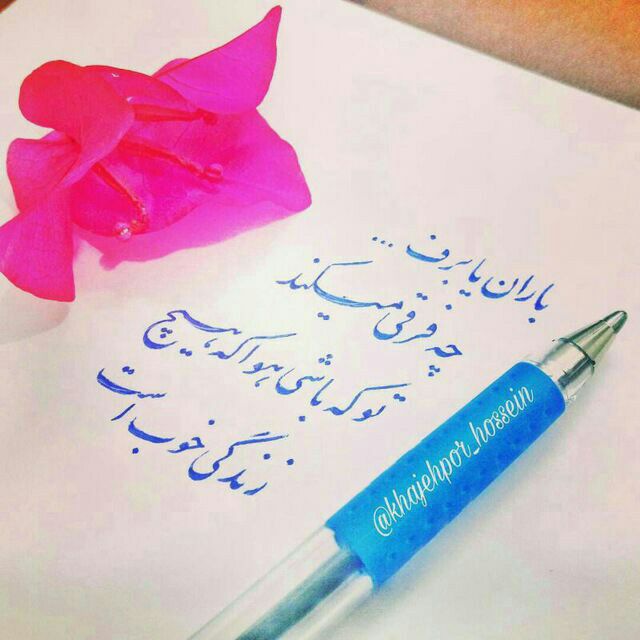 باران یا برف ...
چه فرقی میکند
تو که باشی هوا که هیچ
زندگی خوب است
@khajehpor_hossein